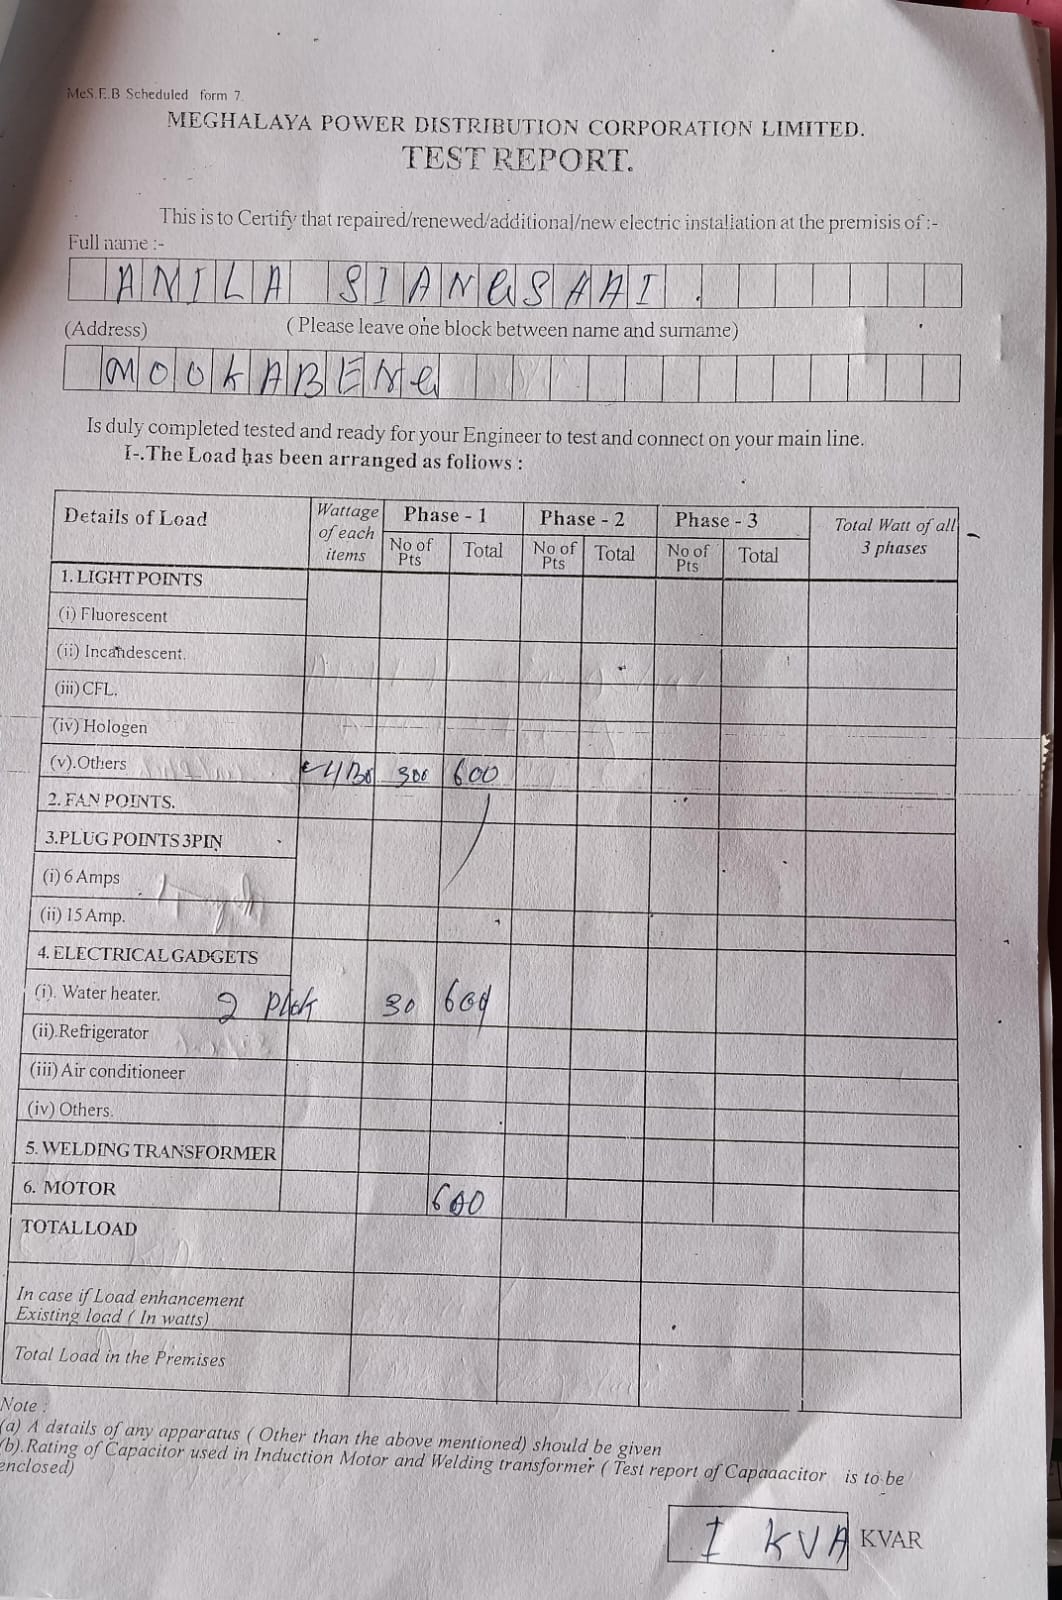 MeS.E.B Scheduled form 7.
MEGHALAYA POWER DISTRIBUTION CORPORATION LIMITED.
TEST REPORT.
This is to Certify that repaired/renewed/additional/new electric installation at the premisis of :-
Full name :-
ANILA SIANGSHAI.
(Address) ( Please leave one block between name and surname)
MOOKABENG
Is duly completed tested and ready for your Engineer to test and connect on your main line.
I-.The Load has been arranged as follows :
Details of Load Wattage of each items Phase - 1 Phase - 2 Phase - 3 Total Watt of all 3 phases
No of Pts Total No of Pts Total No of Pts Total
1. LIGHT POINTS
(i) Fluorescent
(ii) Incandescent.
(iii) CFL.
(iv) Hologen
(v).Others 300 600
2. FAN POINTS.
3.PLUG POINTS 3PIN
(i) 6 Amps
(ii) 15 Amp.
4. ELECTRICAL GADGETS
(i). Water heater. 2 30 600
(ii).Refrigerator
(iii) Air conditioneer
(iv) Others.
5. WELDING TRANSFORMER
6. MOTOR 600
TOTAL LOAD
In case if Load enhancement
Existing load ( In watts)
Total Load in the Premises
Note :
(a) A details of any apparatus ( Other than the above mentioned) should be given
(b).Rating of Capacitor used in Induction Motor and Welding transformer ( Test report of Capaaacitor is to be
enclosed)
I KVA KVAR